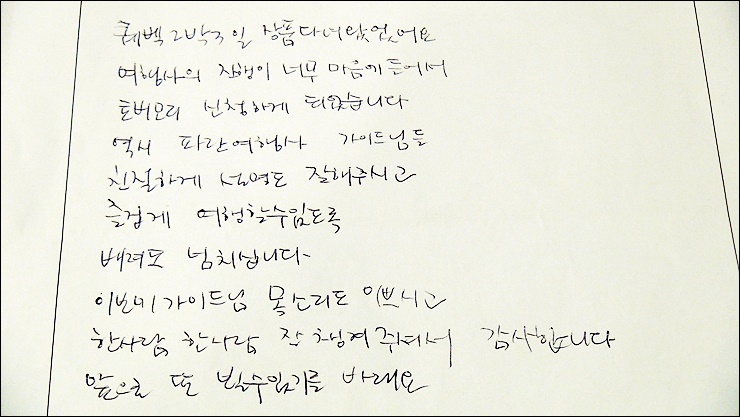 퀘벡 2박3일 상품다녀왔었어요
여행사의 진행이 너무 마음에들어서
토버모리 신청하게 되었습니다
역시 파란여행사 가이드님들
친절하게 설명도 잘해주시고
즐겁게 여행할수있도록
배려도 넘치십니다
가이드님 목소리도 이쁘시고
한사람 한사람 잘 챙겨주셔서 감사합니다
앞으로 또 뵐수있기를 바래요